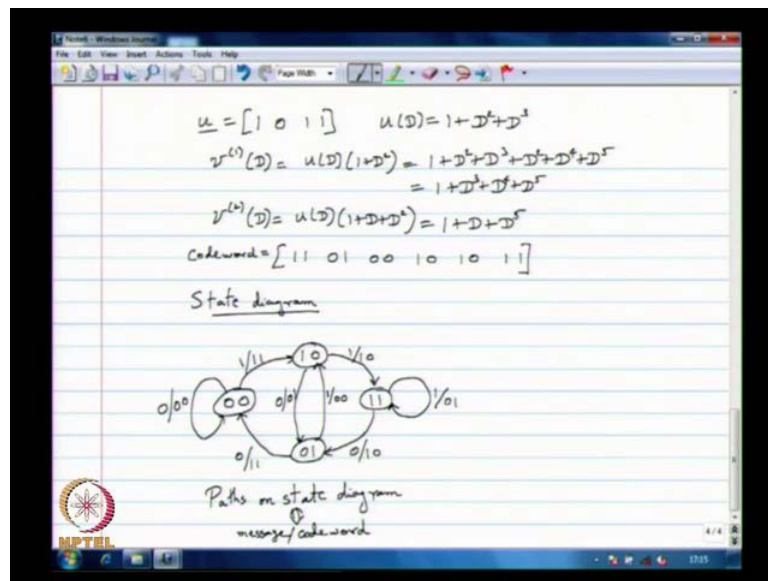 Note6 - Windows Journal
File Edit View Insert Actions Tools Help
Page Width
u = [1 0 1 1] u(D) = 1+D²+D³
v⁽¹⁾(D) = u(D)(1+D²) = 1+D²+D³+D²+D⁴+D⁵
= 1+D³+D⁴+D⁵
v⁽²⁾(D) = u(D)(1+D+D²) = 1+D+D⁵
Codeword = [11 01 00 10 10 11]
State diagram
1/11 10 1/10
0/00 00 0/01 1/00 11 1/01
0/11 01 0/10
Paths on state diagram
⇕
message/codeword
NPTEL
4/4
17:15